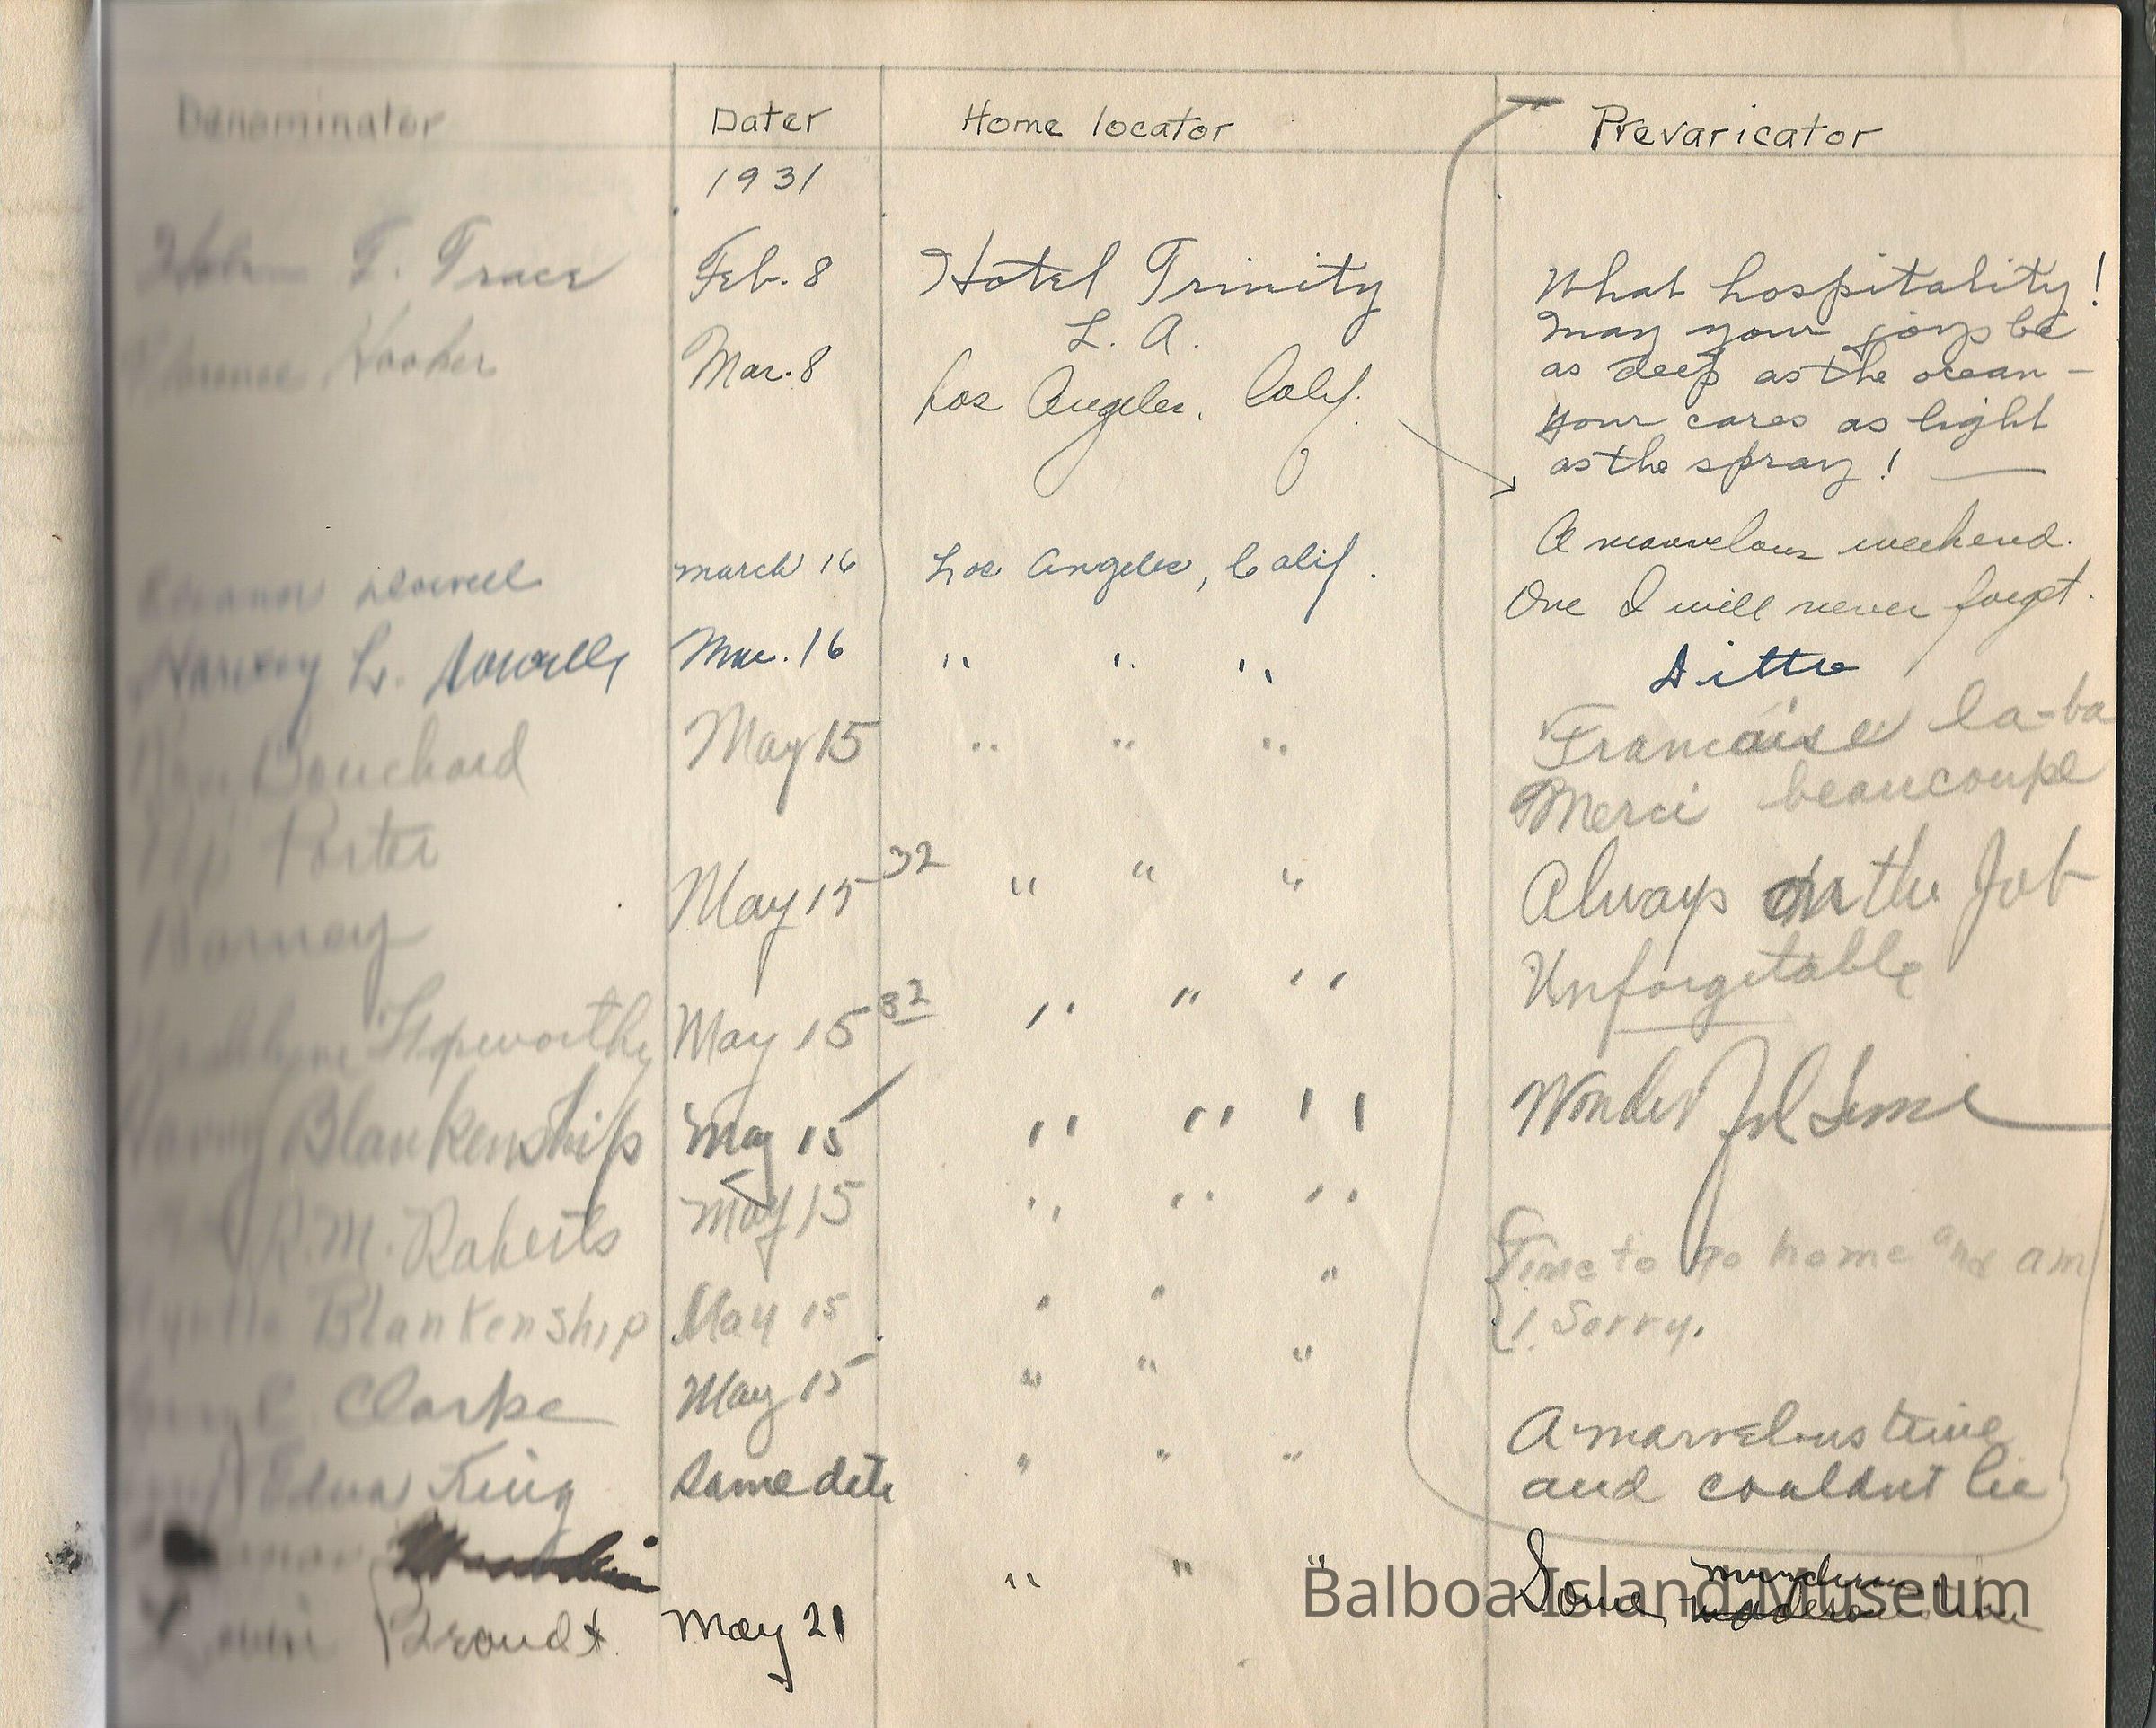 Denominator Dater Home locator Prevaricator
1931
F. Trace Feb. 8 Hotel Trinity What hospitality!
L. A. May your joys be
Hooker Mar. 8 Los Angeles, Calif. as deep as the ocean -
your cares as light
as the spray!
A marvelous weekend.
march 16 Los Angeles, Calif. One I will never forget.
Harvey L. Mar. 16 " " " Ditto
Bouchard May 15 " " " Francaise la-ba
Merci beaucoupe
Porter May 15 32 " " " Always on the Job
Barney Unforgetable
Hepworth May 15 32 " " "
Blankenship May 15 " " " Wonderful time
R. M. Roberts May 15 " " " Time to go home and am
Blankenship May 15 " " " I sorry.
Clarke May 15 " " " A marvelous time
Edna King Same date " " " and couldnt lie
" " " Some
Brandt May 21
Balboa Island Museum